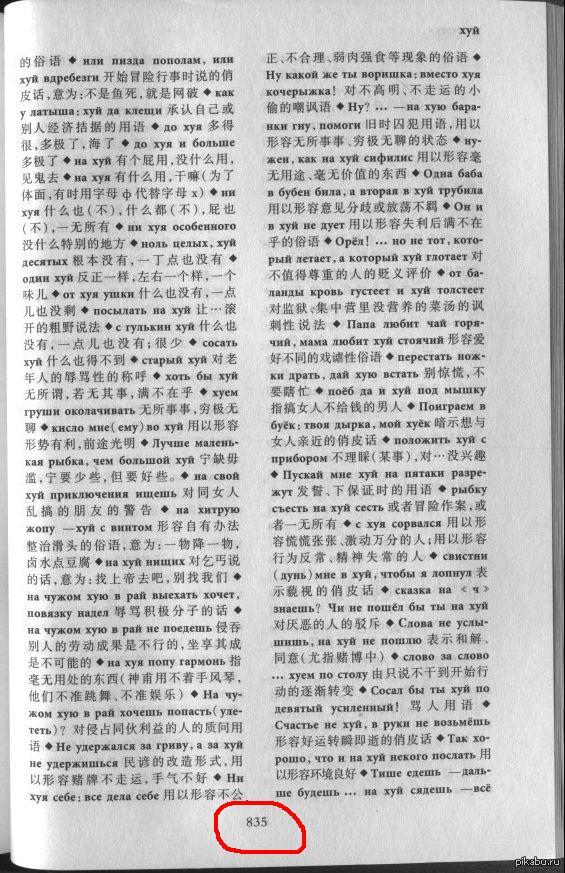 хуй
的俗语 ◆ или пизда пополам, или
хуй вдребезги 开始冒险行事时说的俏
皮话,意为:不是鱼死,就是网破 ◆ как
у латыша: хуй да клещи 承认自己或
别人经济拮据的用语 ◆ до хуя 多得
很,多极了,海了 ◆ до хуя и больше
多极了 ◆ на хуй 有个屁用,没什么用,
见鬼去 ◆ на хуя 有什么用,干嘛(为了
体面,有时用字母 ф 代替字母 х) ◆ ни
хуя 什么也(不),什么都(不),屁也
(不),一无所有 ◆ ни хуя особенного
没什么特别的地方 ◆ ноль целых, хуй
десятых 根本没有,一丁点也没有 ◆
один хуй 反正一样,左右一个样,一个
味儿 ◆ от хуя ушки 什么也没有,一点
儿也没剩 ◆ посылать на хуй 让…滚
开的粗野说法 ◆ с гулькин хуй 什么也
没有,一点儿也没有;很少 ◆ сосать
хуй 什么也得不到 ◆ старый хуй 对老
年人的辱骂性的称呼 ◆ хоть бы хуй
无所谓,若无其事,满不在乎 ◆ хуем
груши околачивать 无所事事,穷极无
聊 ◆ кисло мне(ему) во хуй 用以形容
形势有利,前途光明 ◆ Лучше малень-
кая рыбка, чем большой хуй 宁缺毋
滥,宁要少些,但要好些。 ◆ на свой
хуй приключения ищешь 对同女人
乱搞的朋友的警告 ◆ на хитрую
жопу —хуй с винтом 形容自有办法
整治滑头的俗语,意为:一物降一物,
卤水点豆腐 ◆ на хуй нищих 对乞丐说
的话,意为:找上帝去吧,别找我们 ◆
на чужом хую в рай выехать хочет,
повязку надел 辱骂积极分子的话 ◆
на чужом хую в рай не поедешь 侵吞
别人的劳动成果是不行的,坐享其成
是不可能的 ◆ на хуя попу гармонь 指
毫无用处的东西(神甫用不着手风琴,
他们不准跳舞、不准娱乐) ◆ На чу-
жом хую в рай хочешь попасть(уле-
теть)? 对侵占同伙利益的人的质问用
语 ◆ Не удержался за гриву, а за хуй
не удержишься 民谚的改造形式,用
以形容赌牌不走运,手气不好 ◆ Ни
хуя себе: все дела себе 用以形容不公
正、不合理、弱肉强食等现象的俗语 ◆
Ну какой же ты воришка: вместо хуя
кочерыжка! 对不高明、不走运的小
偷的嘲讽语 ◆ Ну? ... —на хую бара-
нки гну, помоги 旧时囚犯用语,用以
形容无所事事、穷极无聊的状态 ◆ ну-
жен, как на хуй сифилис 用以形容毫
无用途、毫无价值的东西 ◆ Одна баба
в бубен била, а вторая в хуй трубила
用以形容意见分歧或放荡不羁 ◆ Он и
в хуй не дует 用以形容失利后满不在
乎的俗语 ◆ Орёл! ... но не тот, кото-
рый летает, а который хуй глотает 对
不值得尊重的人的贬义评价 ◆ от ба-
ланды кровь густеет и хуй толстеет
对监狱、集中营里没营养的菜汤的讽
刺性说法 ◆ Папа любит чай горя-
чий, мама любит хуй стоячий 形容爱
好不同的戏谑性俗语 ◆ перестать нож-
ки драть, дай хую встать 别惊慌,不
要瞎忙 ◆ поёб да и хуй под мышку
指搞女人不给钱的男人 ◆ Поиграем в
буёк: твоя дырка, мой хуёк 暗示想与
女人亲近的俏皮话 ◆ положить хуй с
прибором 不理睬(某事),对…没兴趣
◆ Пускай мне хуй на пятаки разре-
жут 发誓、下保证时的用语 ◆ рыбку
съесть на хуй сесть 或者冒险作案,或
者一无所有 ◆ с хуя сорвался 用以形
容慌慌张张、激动万分的人;用以形容
行为反常、精神失常的人 ◆ свистни
(дунь) мне в хуй, чтобы я лопнул 表
示藐视的俏皮话 ◆ сказка на «ч»
знаешь? Чи не пошёл бы ты на хуй
对厌恶的人的驳斥 ◆ Слова не услы-
шишь, на хуй не пошлю 表示和解、
同意(尤指赌博中) ◆ слово за слово
... хуем по столу 由只说不干到开始行
动的逐渐转变 ◆ Сосал бы ты хуй по
девятый усиленный! 骂人用语 ◆
Счастье не хуй, в руки не возьмёшь
形容好运转瞬即逝的俏皮话 ◆ Так хо-
рошо, что и на хуй некого послать 用
以形容环境良好 ◆ Тише едешь —даль-
ше будешь ... на хуй сядешь —всё
835
pikabu.ru